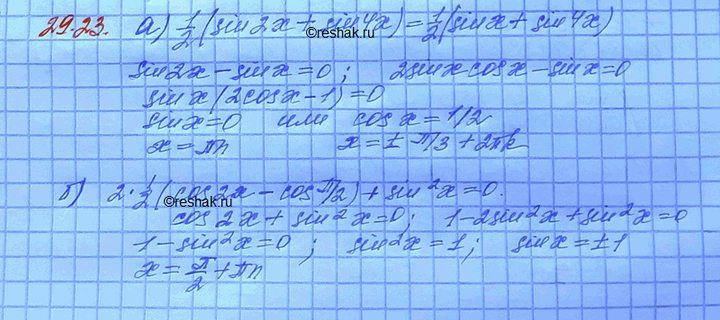 29.23. а) 1/2(sin2x+sin4x)=1/2(sinx+sin4x)
©reshak.ru
sin2x-sinx=0; 2sinxcosx-sinx=0
sinx(2cosx-1)=0
sinx=0 или cosx=1/2
x=πn x=±π/3+2πk
б) 2·1/2(cos2x-cosπ/2)+sin²x=0.
©reshak.ru
cos2x+sin²x=0; 1-2sin²x+sin²x=0
1-sin²x=0; sin²x=1; sinx=±1
x=π/2+πn